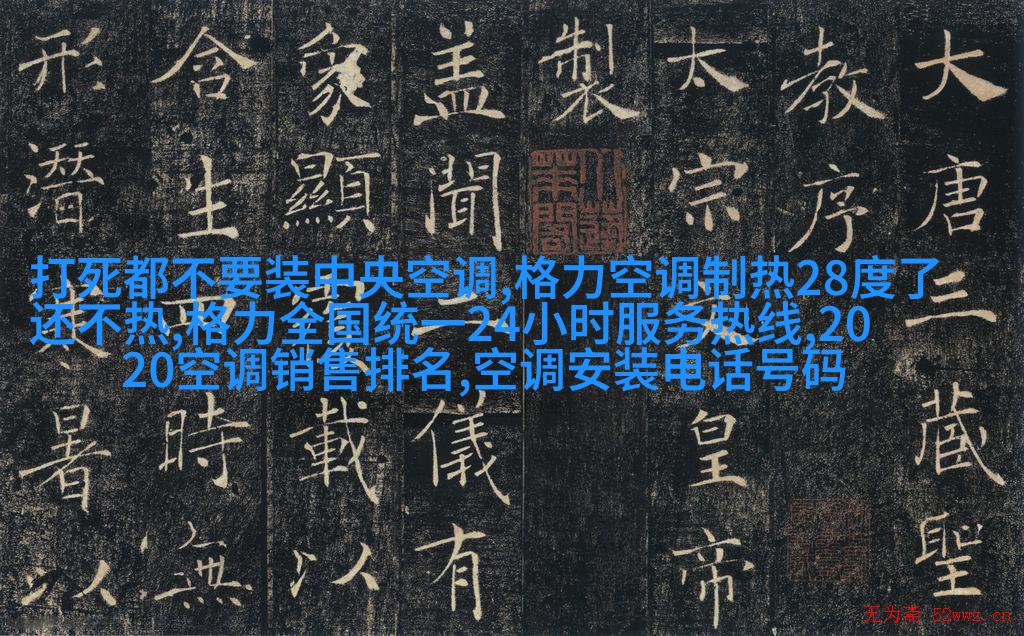 大唐三藏聖
教序
太宗皇帝
製
盖聞二儀有
象顯載以
含生時無
形潛暑以
打死都不要装中央空调,格力空调制热28度了
还不热,格力全国统一24小时服务热线,20
20空调销售排名,空调安装电话号码
无为斋 52wwz.cn